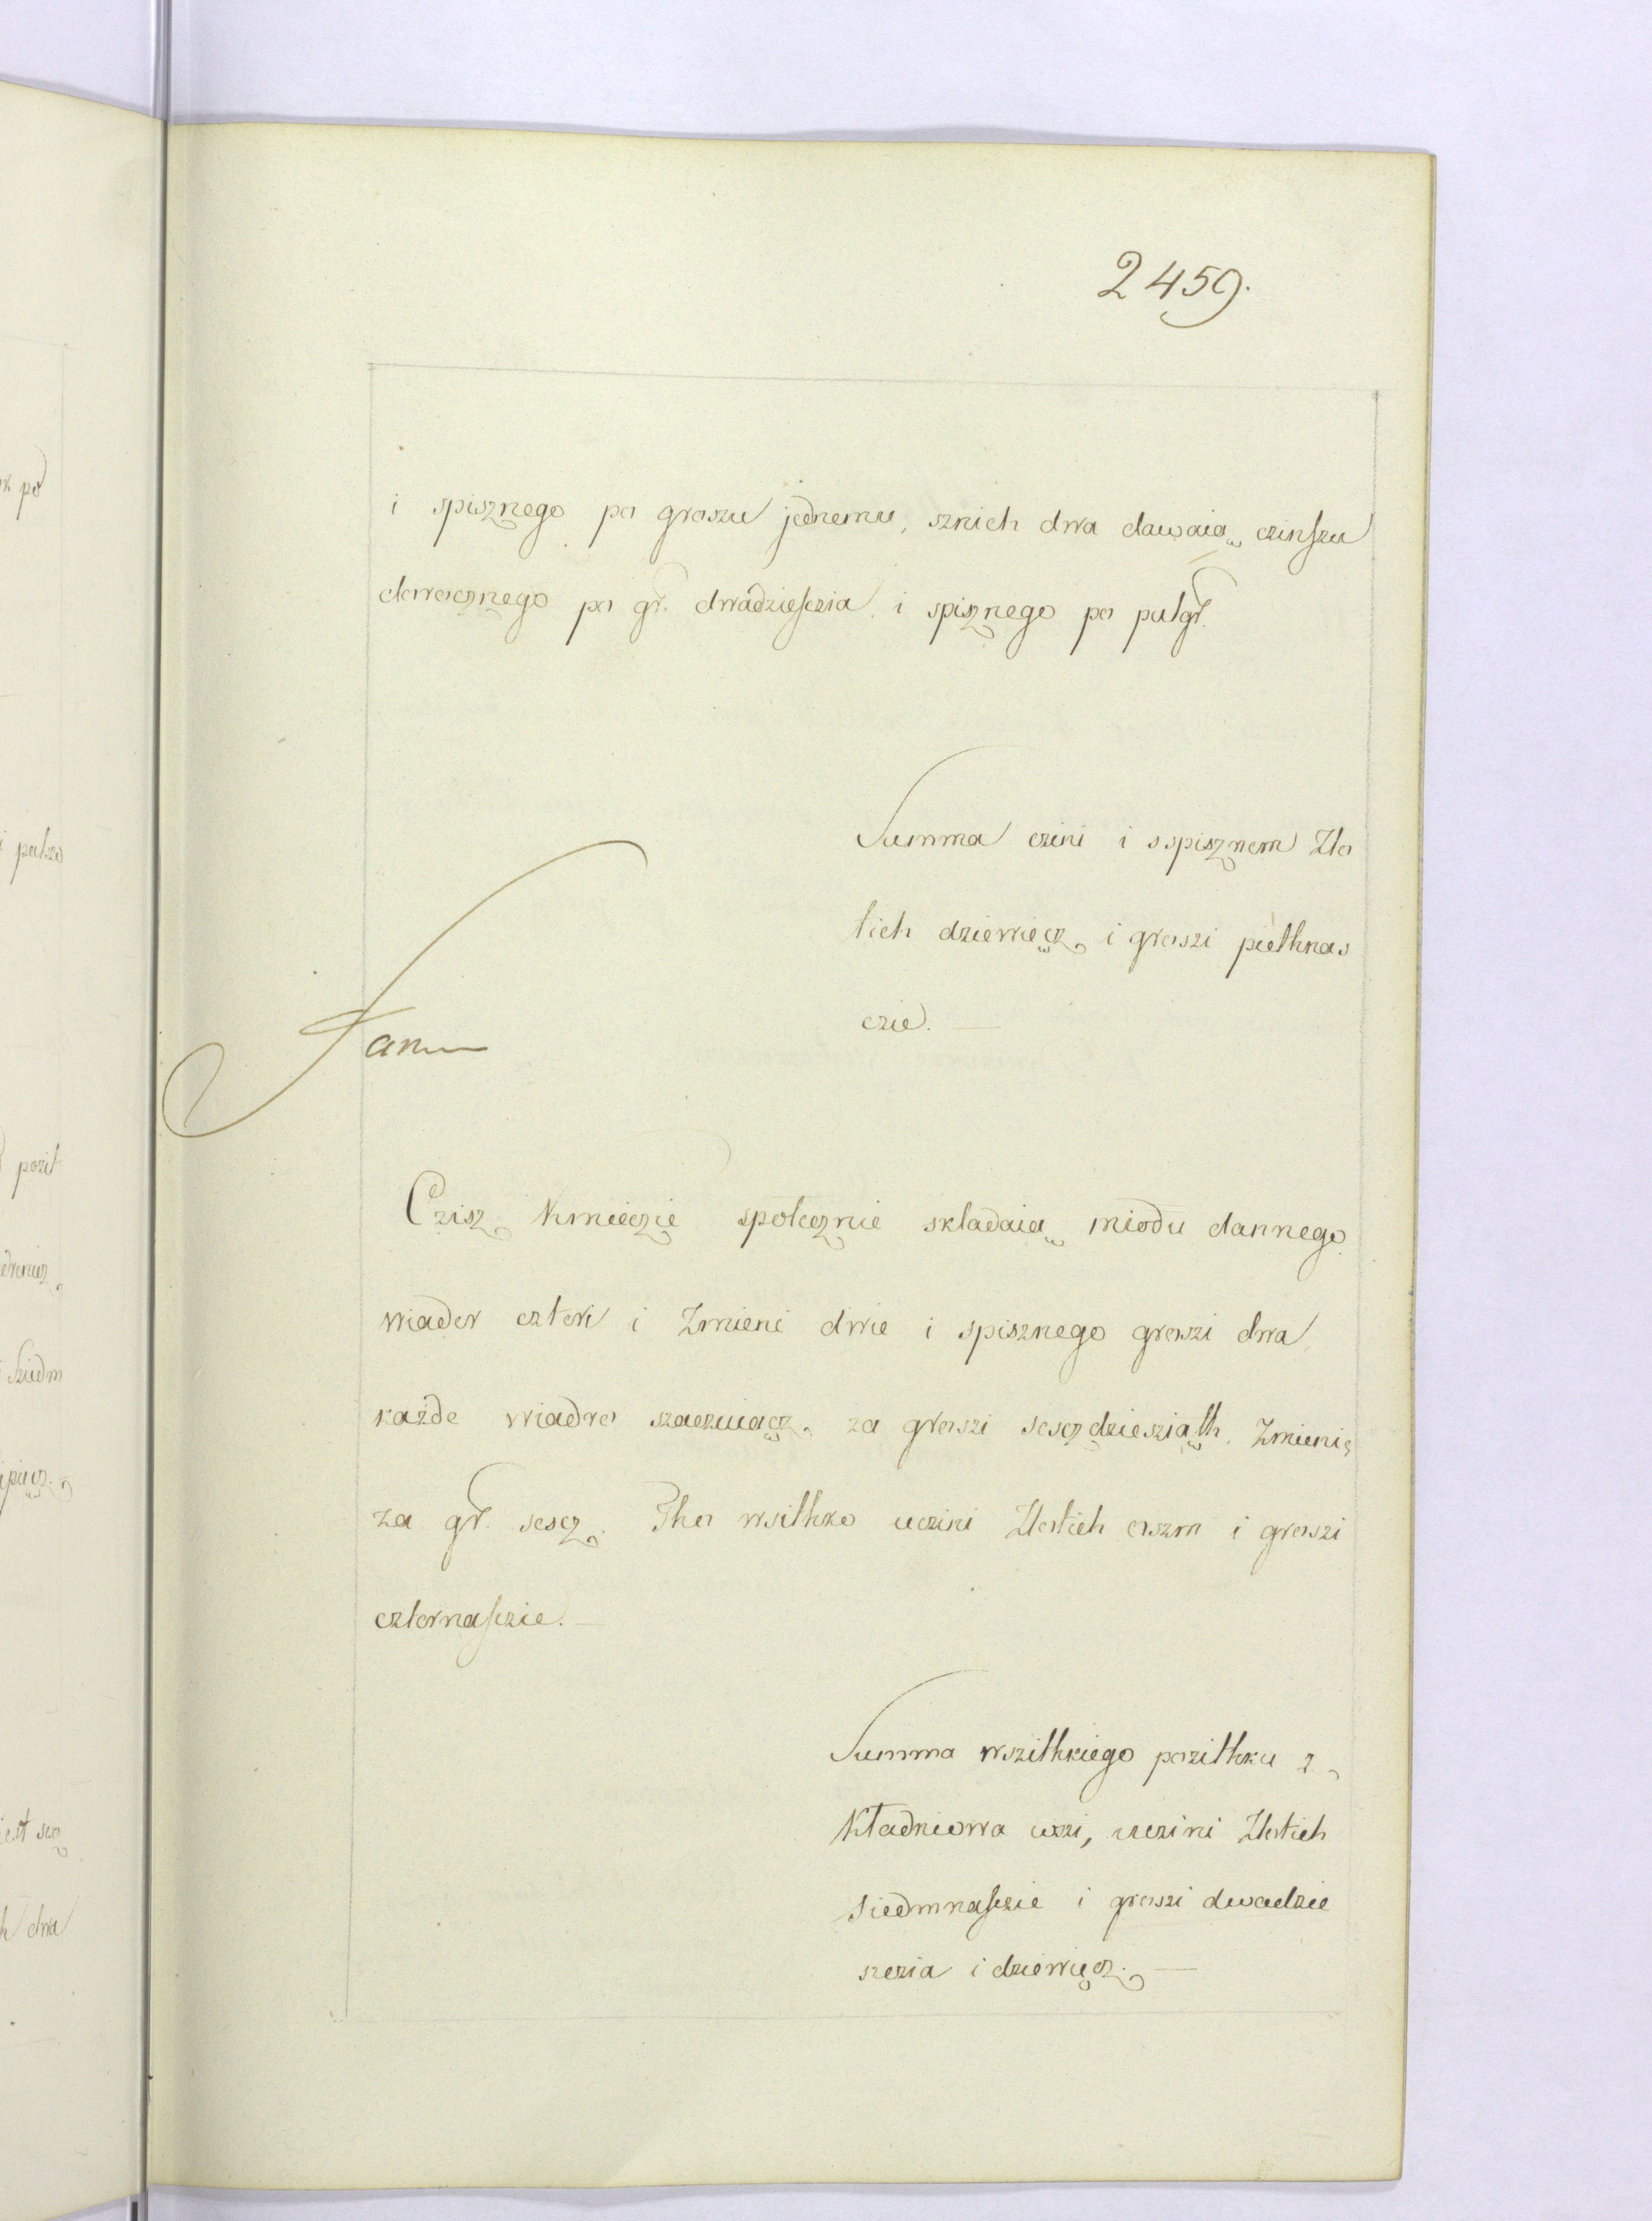 2459.
i spisznego po groszu jednemu, sznich dwa dawaią czinszu
dorocznego po gr. dwadziesczia i spisznego po pułgr.
Summa czini i sspisznem Zło
tich dziewięcz i groszi piethnas
czie. —
Czisz kmieczie społecznie składaia miodu dannego
wiader czteri i Zmieni dwie i spisznego groszi dwa
każde wiadro szaczuiącz za groszi sesczdziesziąth. Zmienię
za gr. sescz. Tho wsithko uczini Złotich oszm i groszi
czternasczie. —
Summa wszithkiego pozithku z
Kładniowa wszi, uczini Złotich
siedmnasczie i groszi dwadzie
szczia i dziewięcz. —
po
dwa